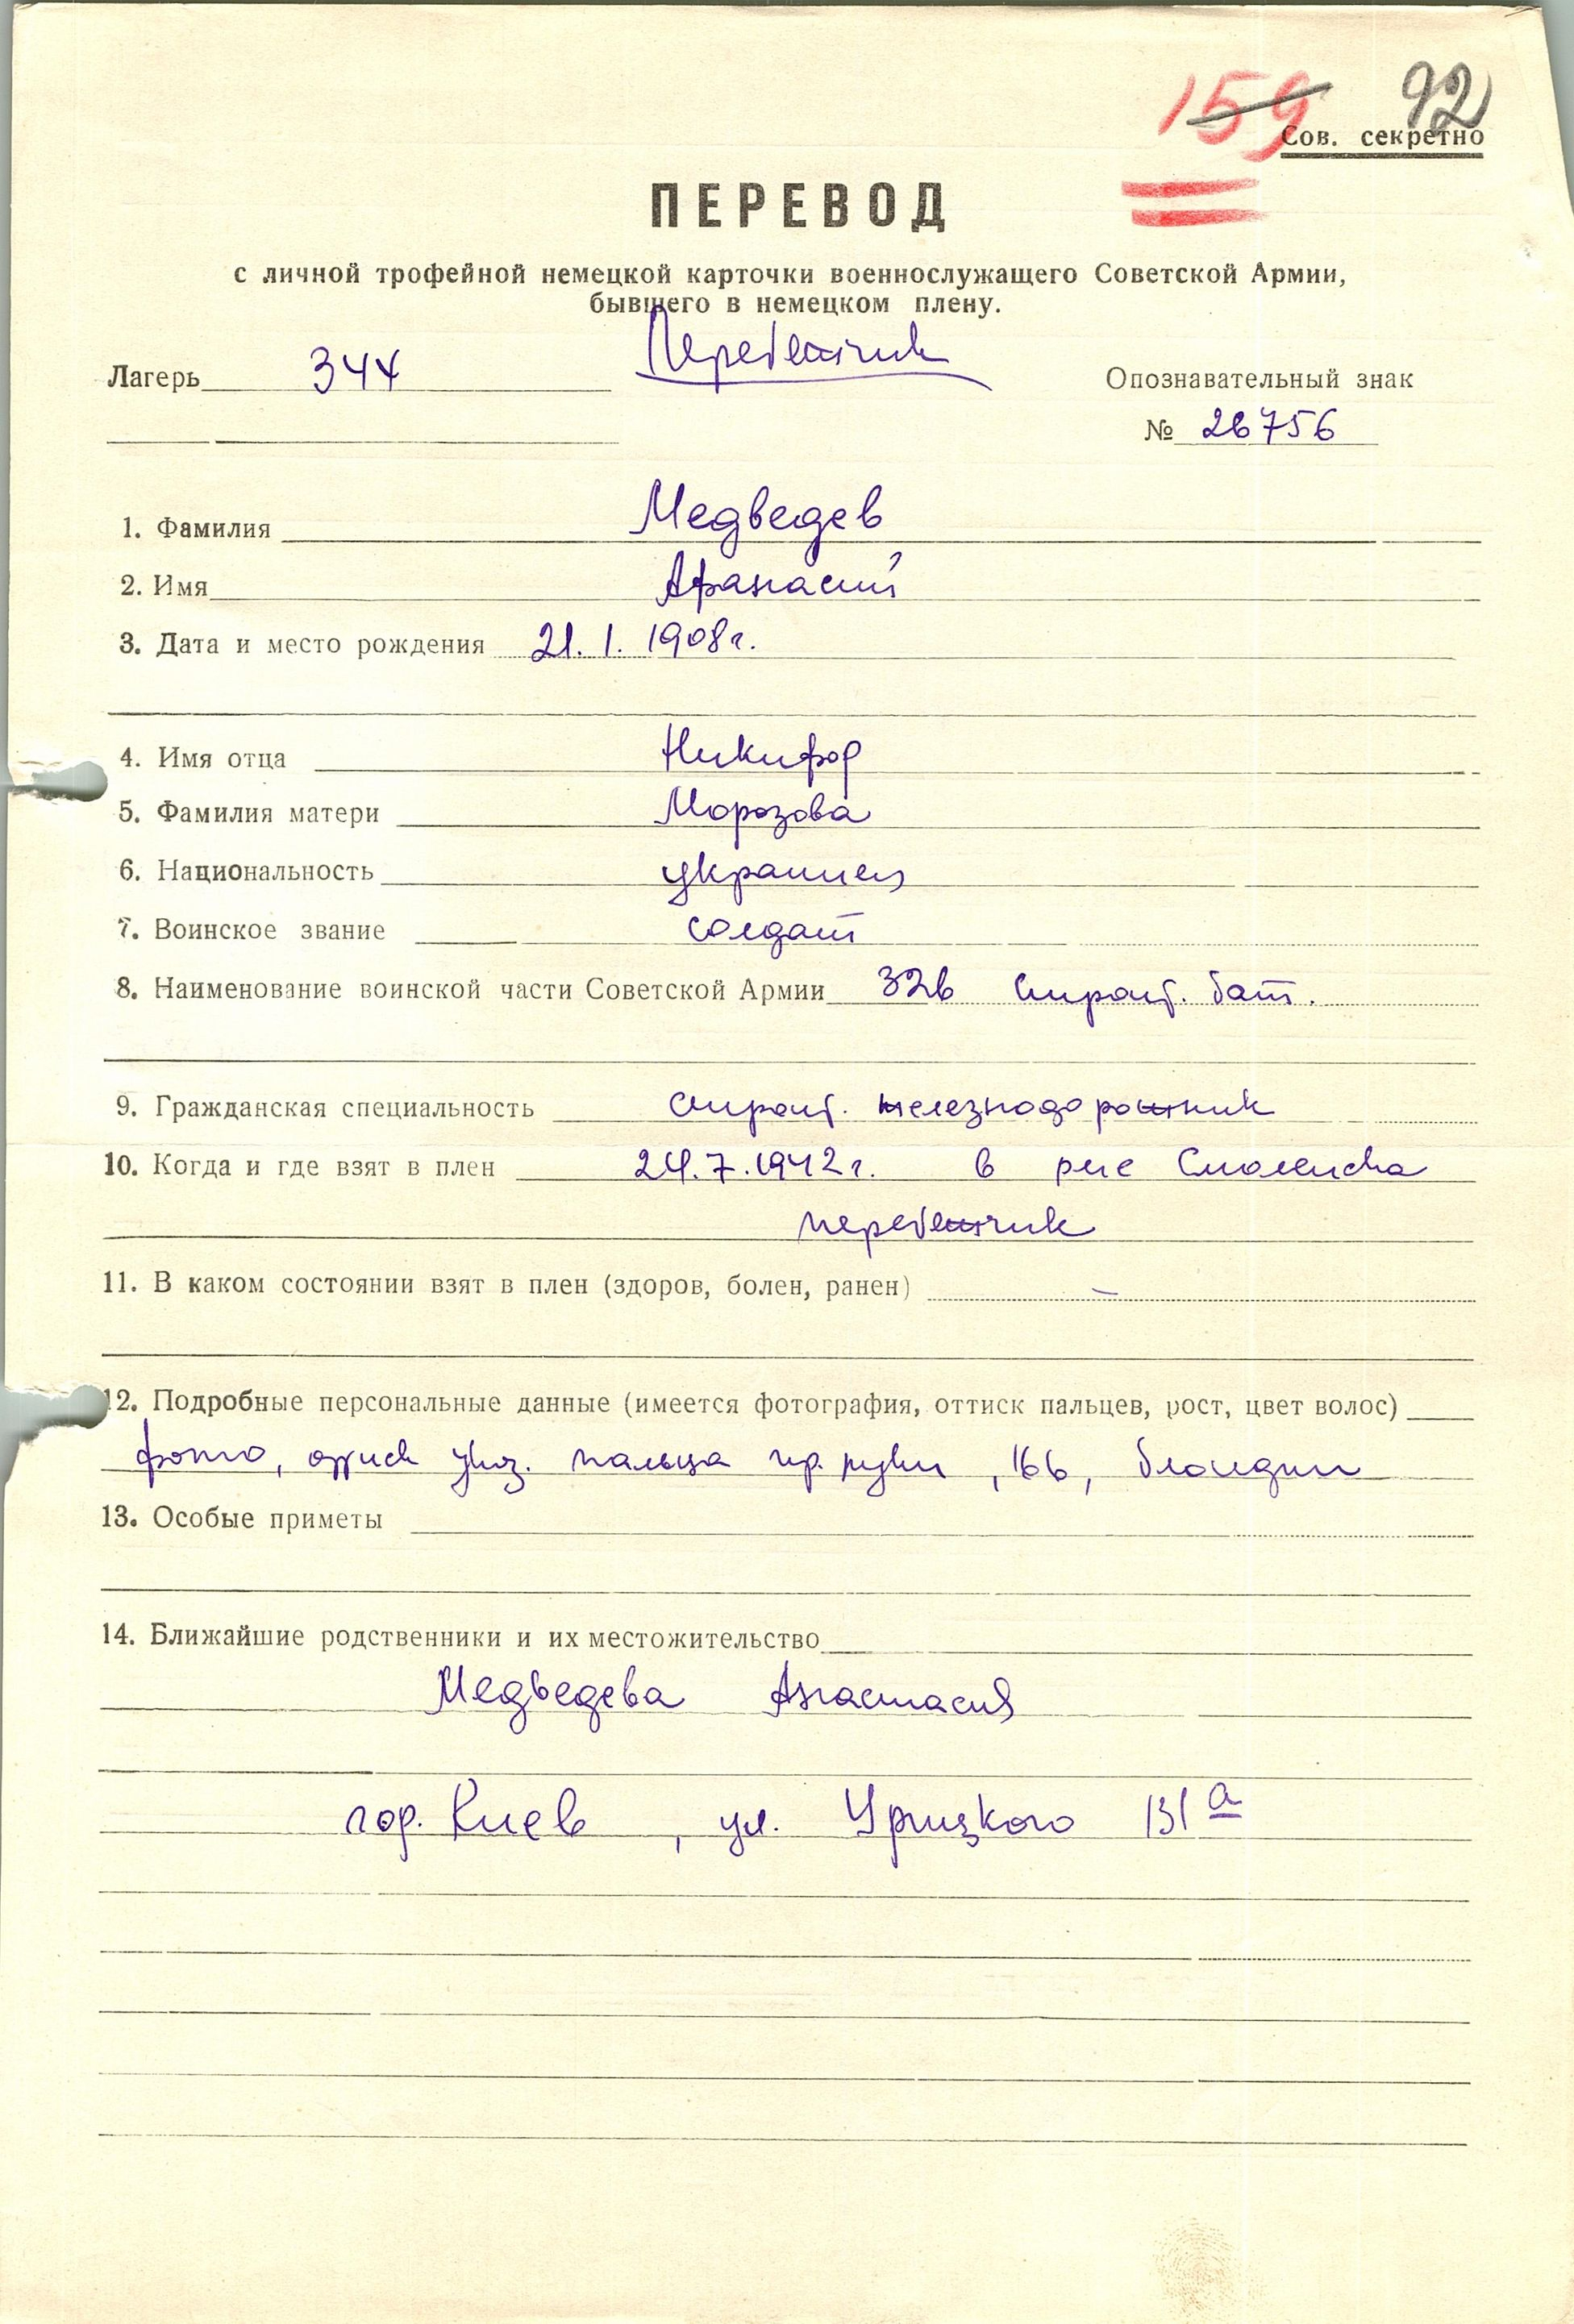 159 92
Сов. секретно
ПЕРЕВОД
с личной трофейной немецкой карточки военнослужащего Советской Армии,
бывшего в немецком плену.
Перебежчик
Лагерь 344
Опознавательный знак
№ 26756
1. Фамилия Медведев
2. Имя Афанасий
3. Дата и место рождения 21. 1. 1908 г.
4. Имя отца Никифор
5. Фамилия матери Морозова
6. Национальность украинец
7. Воинское звание солдат
8. Наименование воинской части Советской Армии 326 строит. бат.
9. Гражданская специальность строит. железнодорожник
10. Когда и где взят в плен 24.7.1942 г. в р-не Смоленска
перебежчик
11. В каком состоянии взят в плен (здоров, болен, ранен) –
12. Подробные персональные данные (имеется фотография, оттиск пальцев, рост, цвет волос)
фото, оттиск указ. пальца пр. руки, 166, блондин
13. Особые приметы
14. Ближайшие родственники и их местожительство
Медведева Анастасия
гор. Киев, ул. Урицкого 131 а